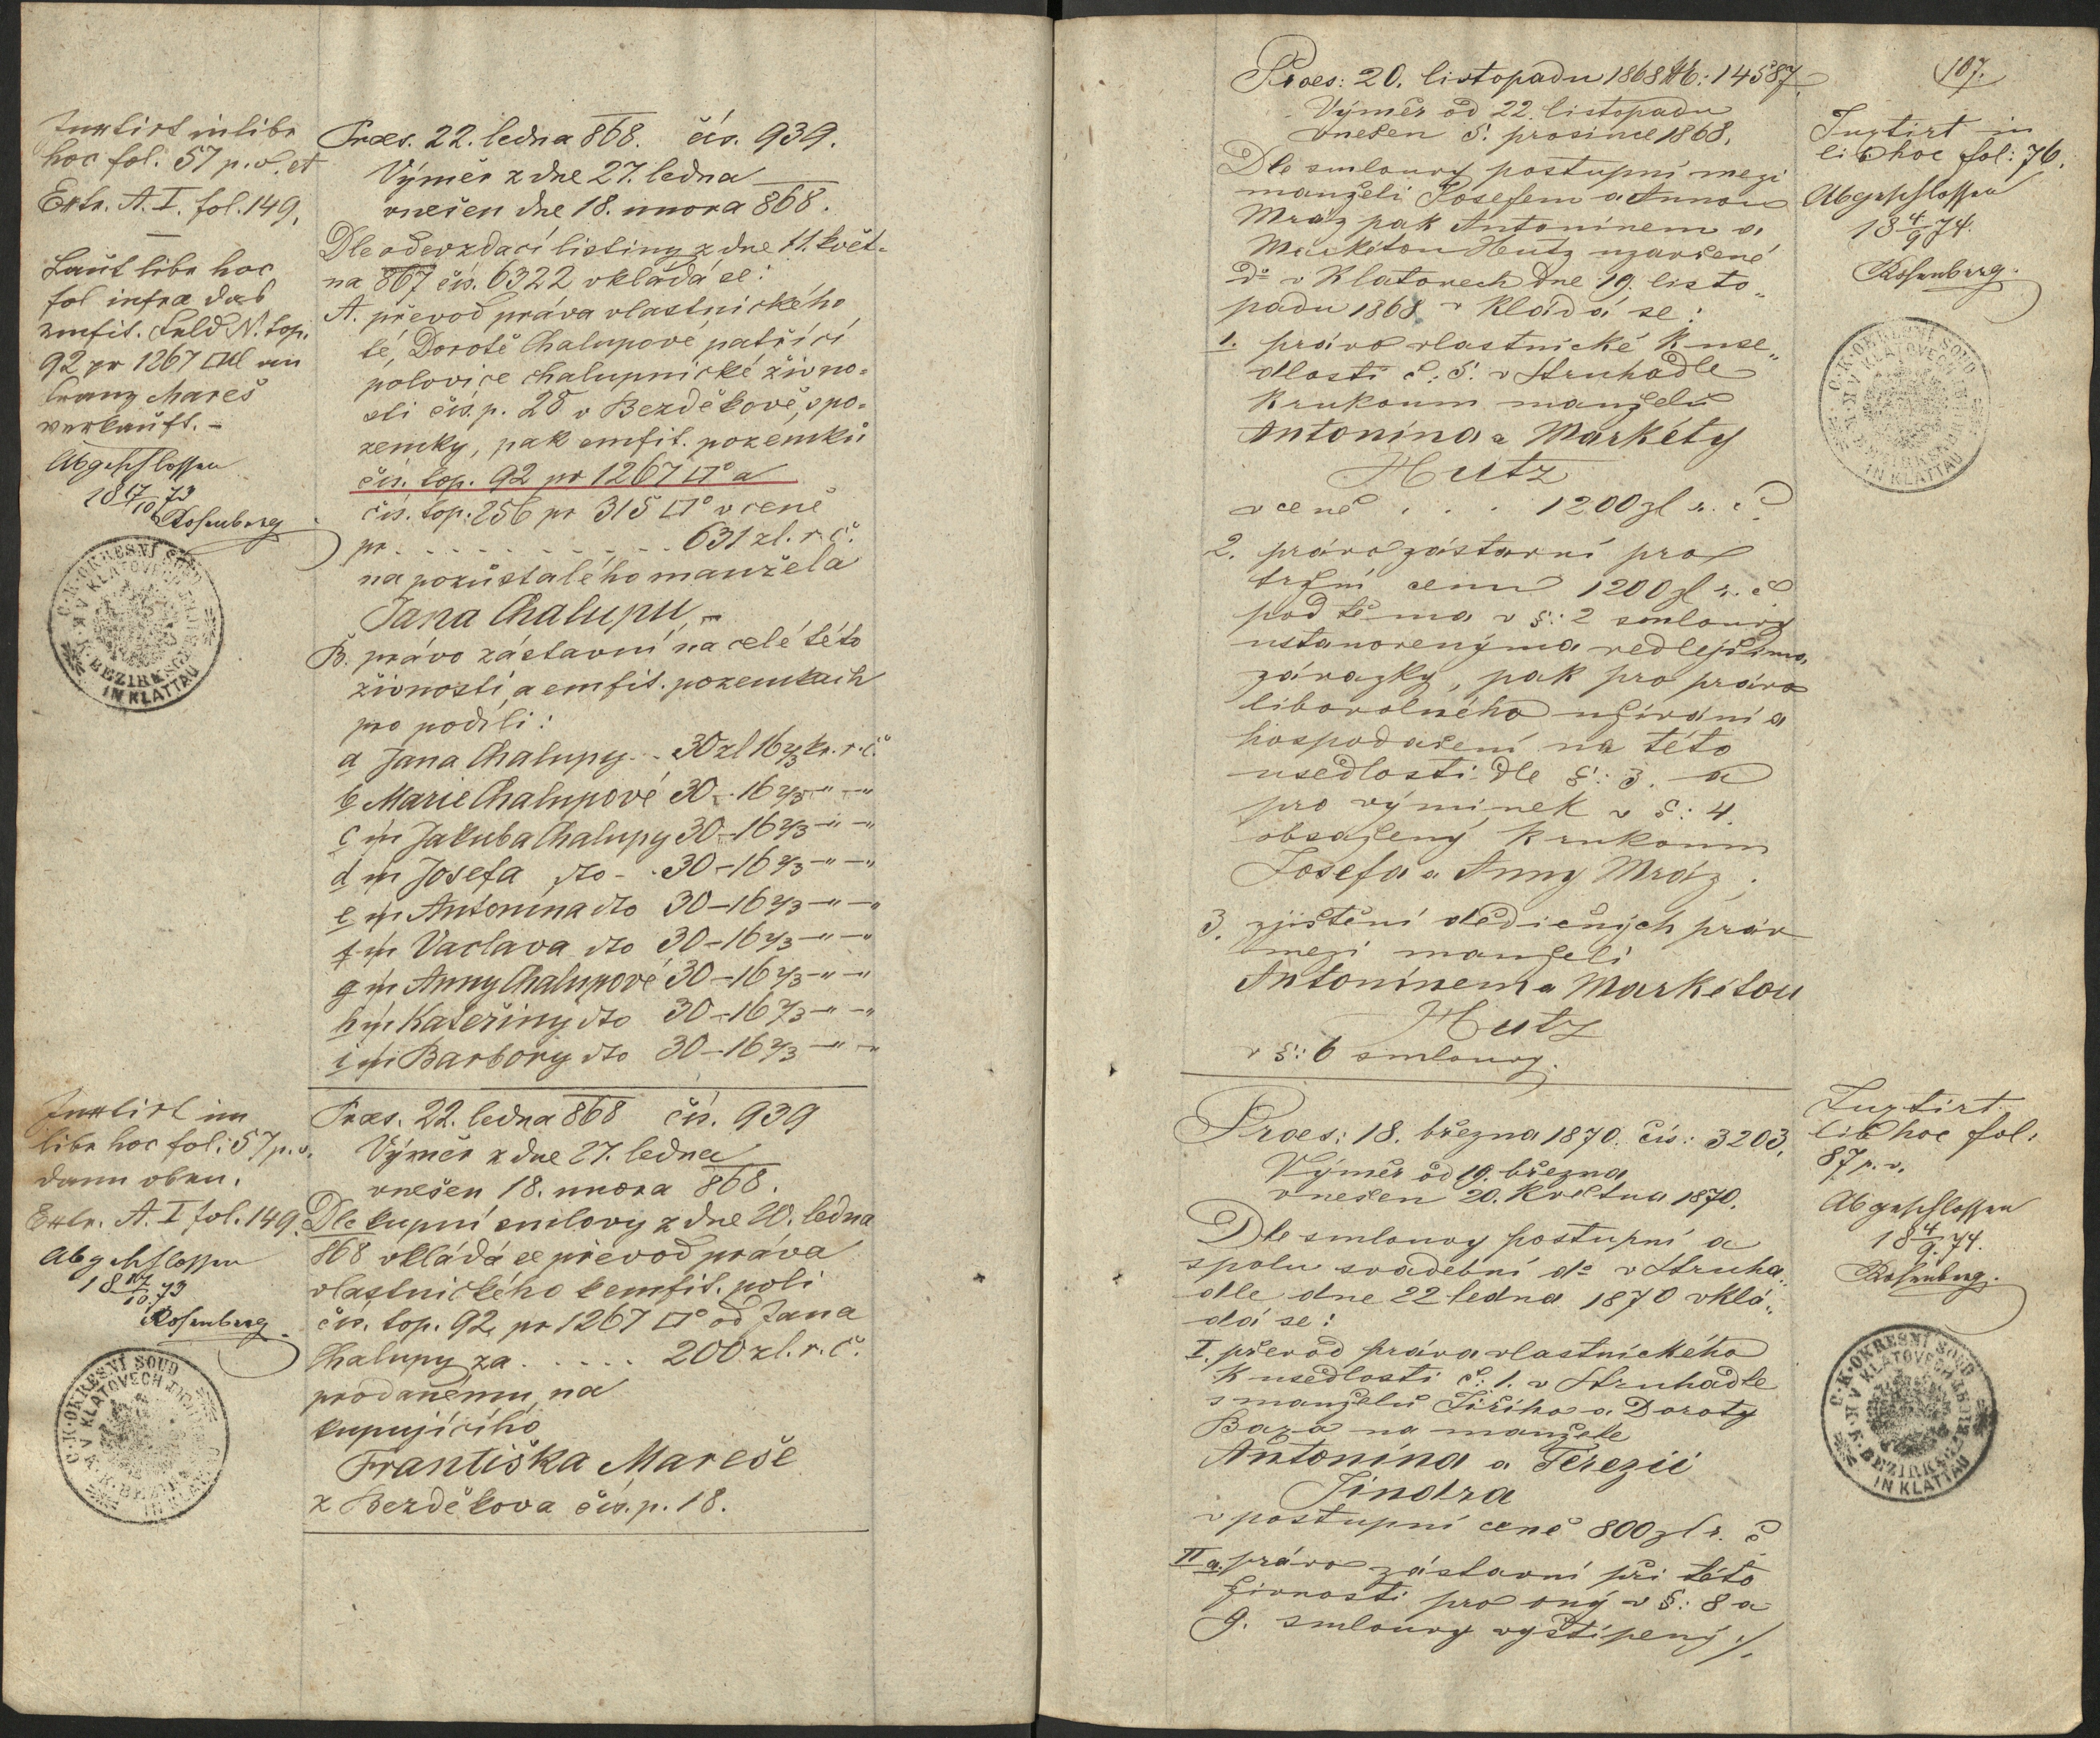 Inxtirt in libr
hoc fol. 57 p. v. et
Extr. A. I. fol. 149.
Laut libr hoc
fol infra das
emfit. Feld N. top.
92 pr 1267 □Kl an
Franz Mareš
verkauft. –
Abgeschlossen
18 17/10 73
Rosenberg
C. K. OKRESNÍ SOUD V KLATOVECH
K. K. BEZIRKSGERICHT IN KLATTAU
Praes. 22. ledna 868. čís. 939.
Výměr z dne 27. ledna
vnešen dne 18. unora 868.
Dle odevzdací listiny z dne 11. květ-
na 867 čís. 6322 vkládá se:
A. převod práva vlastnického
té, Dorotě Chalupové patřící
polovice chalupnické živno-
sti čís. p. 28 v Bezděkově, s po-
zemky, pak emfit. pozemků
čís. top. 92 pr 1267 □° a
čís. top. 256 pr 315 □° v ceně
pr . . . . . . . . . . 631 zl. r. č.
na pozůstalého manžela
Jana Chalupu, –
B. právo zástavní na celé této
živnosti, a emfit. pozemkách
pro podíli:
a Jana Chalupy . . 30 zl 16 2/3 kr. r. č.
b Marie Chalupové 30 – 16 2/3 –" –"
c m Jakuba Chalupy 30 – 16 2/3 –" –"
d m Josefa dto – . 30 – 16 2/3 –" –"
e m Antonína dto 30 – 16 2/3 –" –"
f m Vaclava dto 30 – 16 2/3 –" –"
g m Anny Chalupové 30 – 16 2/3 –" –"
h m Kateřiny dto 30 – 16 2/3 –" –"
i m Barbory dto 30 – 16 2/3 –" –"
Inxtirt im
libr hoc fol. 57 p. v.
dann oben.
Extr. A. I fol. 149.
Abgeschlossen
18 17/10 73
Rosenberg
C. K. OKRESNÍ SOUD V KLATOVECH
K. K. BEZIRKSGERICHT IN KLATTAU
Praes. 22. ledna 868 čís. 939
Výměr z dne 27. ledna
vnešen 18. unora 868.
Dle kupní smlovy z dne 20. ledna
868 vkládá se převod práva
vlastnického k emfit. poli
čís. top. 92, pr 1267 □° od Jana
Chalupy za . . . . . 200 zl. r. č.
prodanému, na
kupujícího
Františka Mareše
z Bezděkova čís. p. 18.
107.
Praes: 20. listopadu 1868 №: 14587.
Výměr od 22. listopadu
vnešen 5. prosince 1868.
Dle smlouvy postupní mezi
manželi Josefem a Annou
Mráz pak Antonínem a
Markétou Hutz uzavřené
do v Klatovech dne 19. listo„
padu 1868 v kládá se:
1. právo vlastnické k use„
dlosti č: 5. v Struhadle
k rukoum manželů
Antonína a Markéty
Hutz
v ceně . . . 1200 zl r. č.
2. právo zástavní pro
tržní cenu 1200 zl r. č
pod těma v §: 2 smlouvy
ustanovenýma vedlejšíma
závazky, pak pro právo
libovolného užívání a
hospodaření na této
usedlosti dle §: 3. a
pro výminek v §: 4.
obsažený k rukoum
Josefa a Anny Mráz;
3. zjištění dědičných práv
mezi manželi
Antonínem a Markétou
Hutz
v §: 6 smlouvy.
Inxtirt in
lib hoc fol: 76.
Abgeschlossen
18 4/9 74.
Rosenberg.
C. K. OKRESNÍ SOUD V KLATOVECH
K. K. BEZIRKSGERICHT IN KLATTAU
Praes: 18. března 1870. čís: 3203.
Výměr od 19. března
vnešen 20. května 1870.
Dle smlouvy postupní a
spolu svadební do v Struha„
dle dne 22 ledna 1870 vklá„
dá se:
I. převod práva vlastnického
k usedlosti č: 1. v Struhadle
s manželů Jiřího a Doroty
Baza na manžele
Antonína a Terezii
Jindra
v postupní ceně 800 zl r. č
II a. právo zástavní při této
živnosti pro oný v §: 8 a
9. smlouvy vyštípený ./.
Inxtirt
lib hoc fol:
87 p. v.
Abgeschlossen
18 4/9 74.
Rosenberg.
C. K. OKRESNÍ SOUD V KLATOVECH
K. K. BEZIRKSGERICHT IN KLATTAU